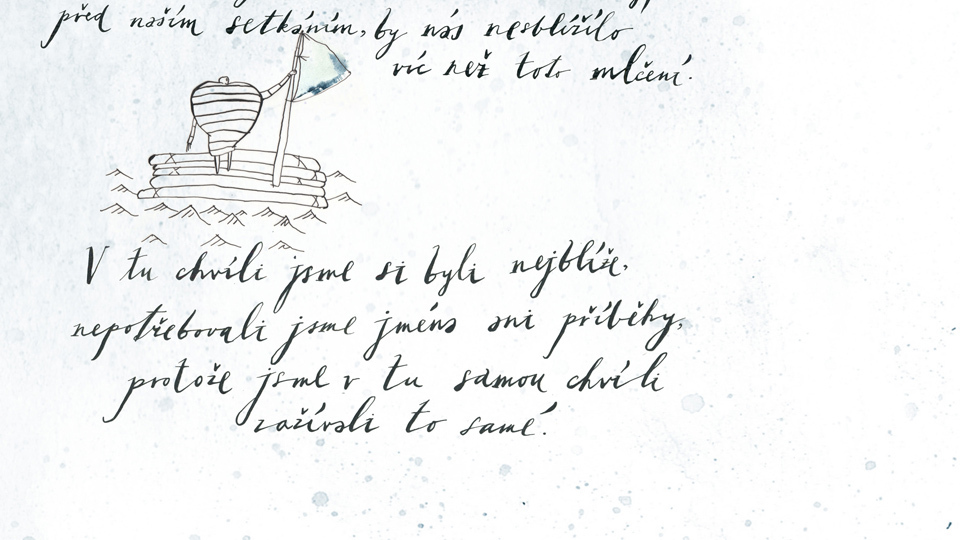 před naším setkáním, by nás nesblížilo
víc než toto mlčení.
V tu chvíli jsme si byli nejblíže,
nepotřebovali jsme jména ani příběhy,
protože jsme v tu samou chvíli
zažívali to samé.